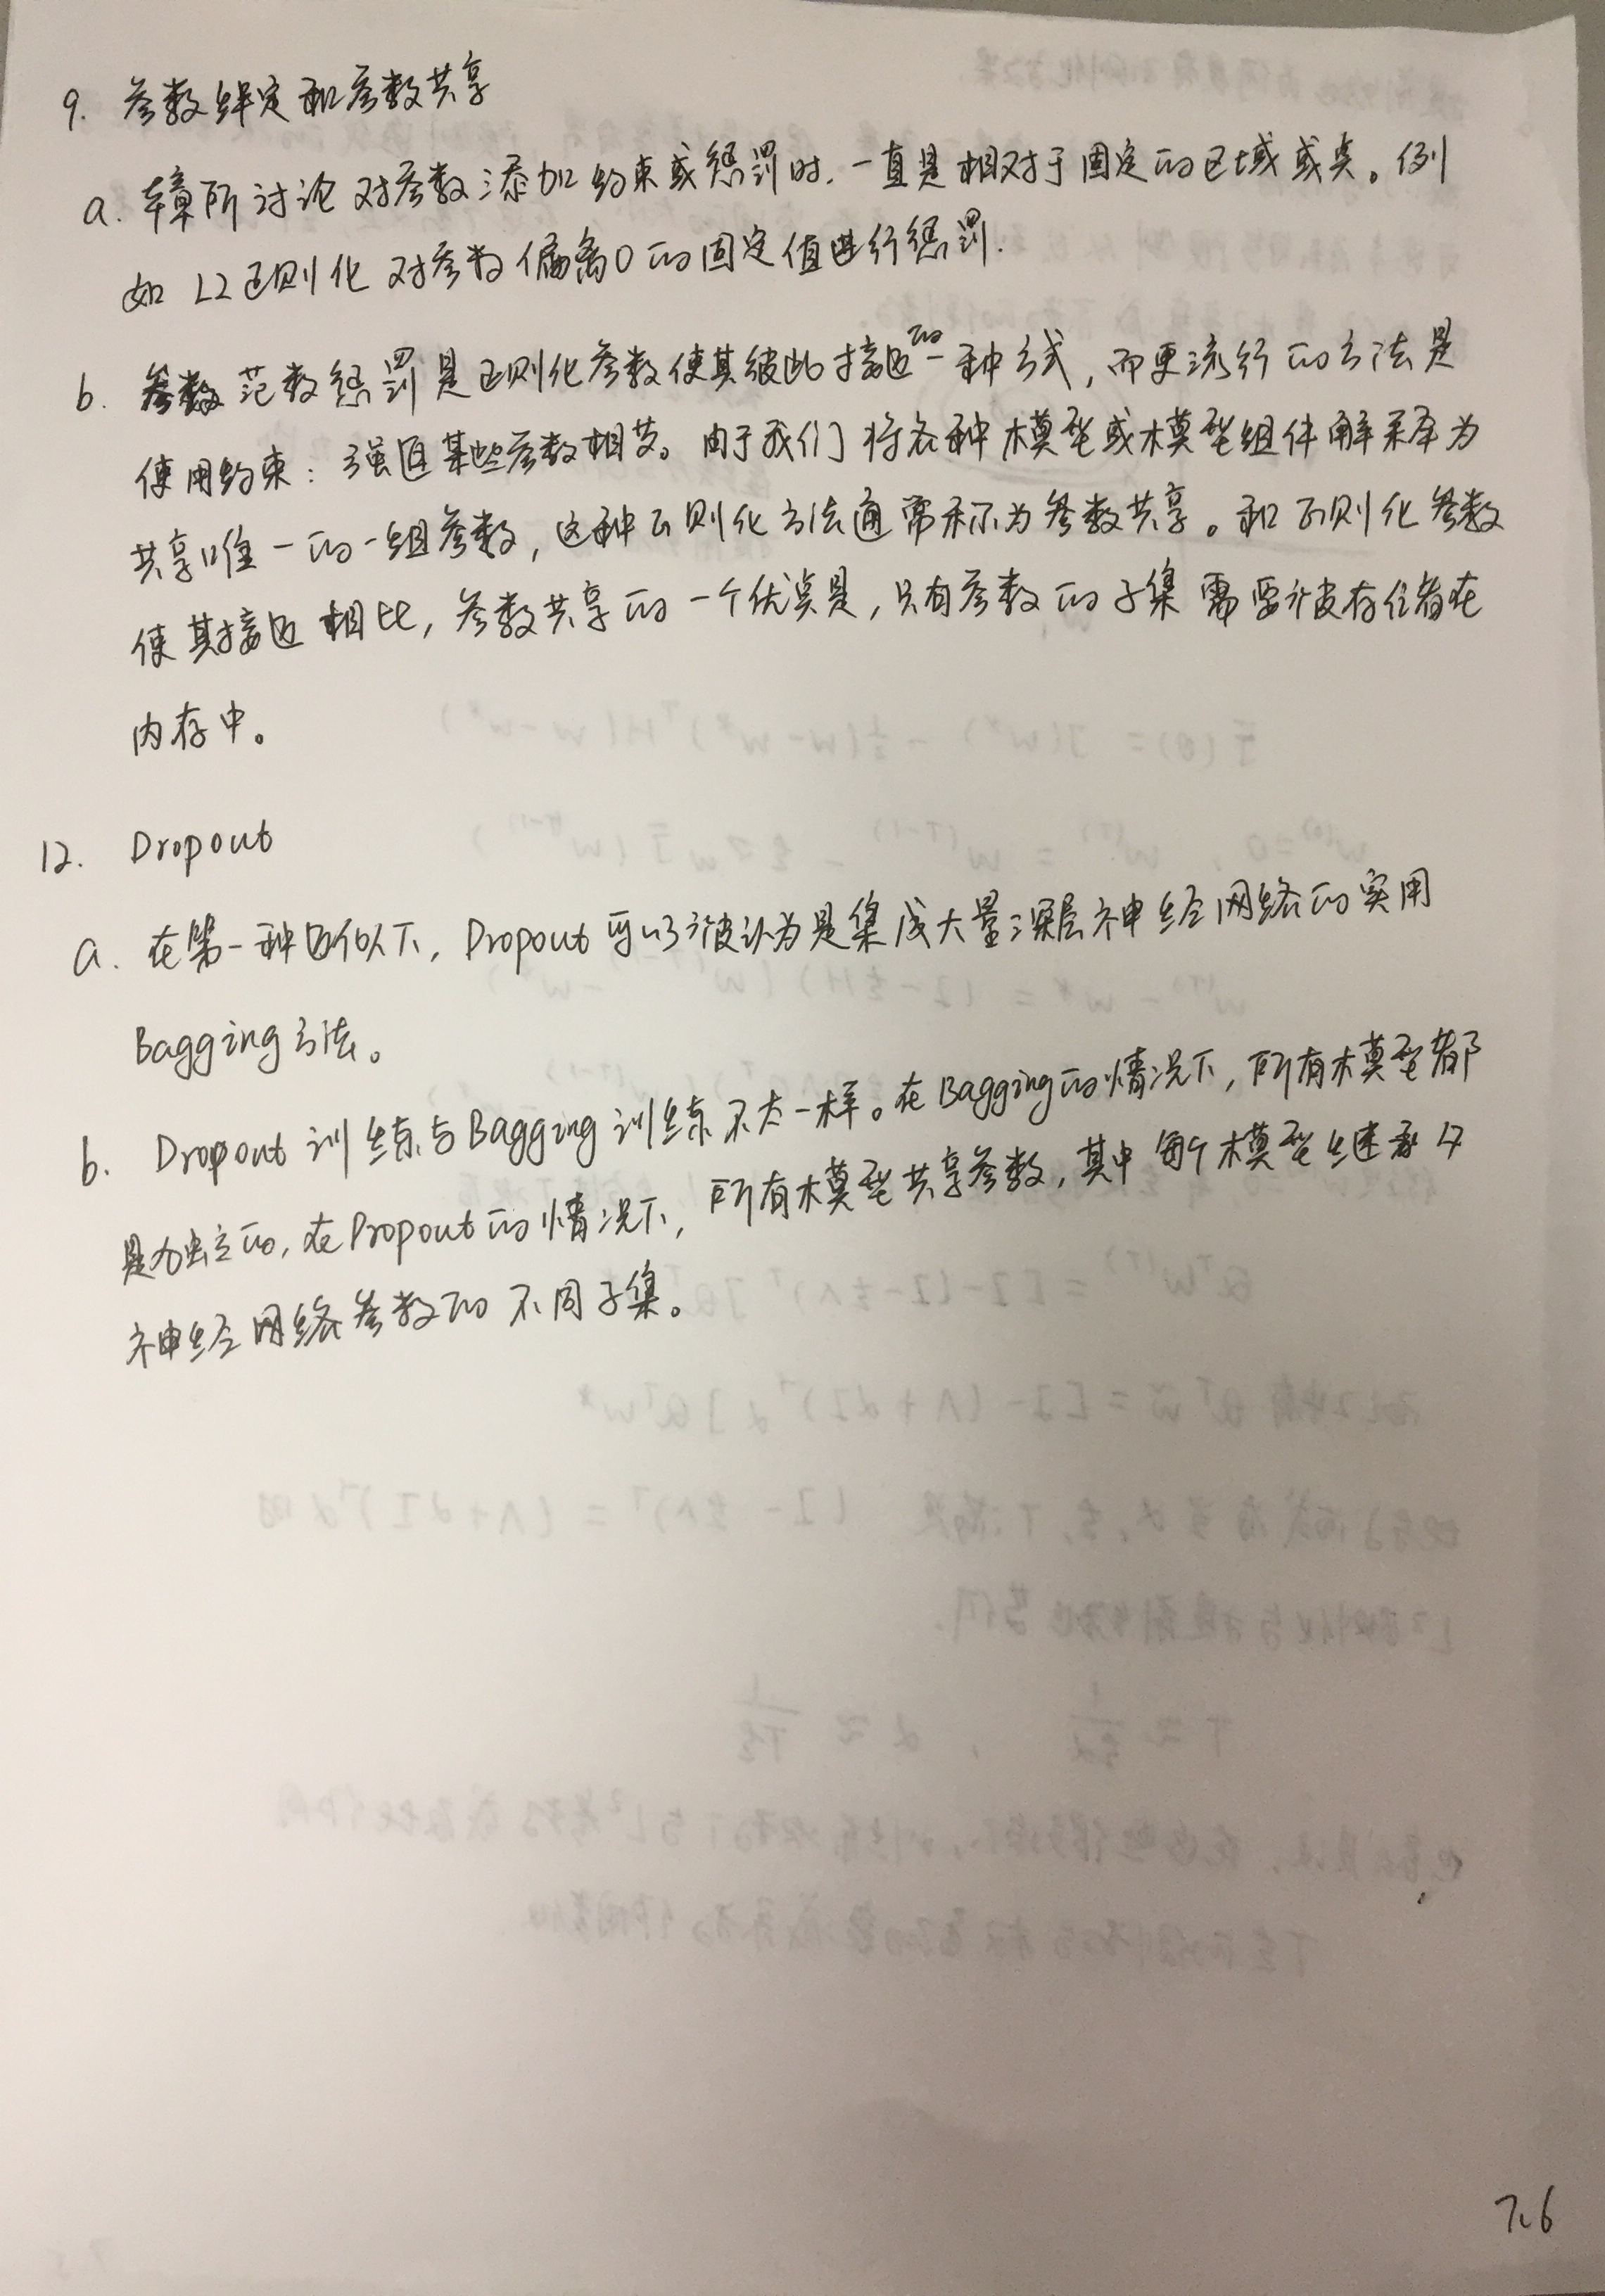 9. 参数绑定和参数共享
a. 本章所讨论对参数添加约束或惩罚时,一直是相对于固定的区域或点。例
如 L2正则化对参数偏离0的固定值进行惩罚.
b. 参数范数惩罚是正则化参数使其彼此接近的一种方式,而更流行的方法是
使用约束:强迫某些参数相等。由于我们将各种模型或模型组件解释为
共享唯一的一组参数,这种正则化方法通常称为参数共享。和正则化参数
使其接近相比,参数共享的一个优点是,只有参数的子集需要被存储在
内存中。
12. Dropout
a. 在第一种近似下,Dropout可以被认为是集成大量深层神经网络的实用
Bagging方法。
b. Dropout训练与Bagging训练不太一样。在Bagging的情况下,所有模型都
是独立的,在Dropout的情况下,所有模型共享参数,其中每个模型继承父
神经网络参数的不同子集。
7.6